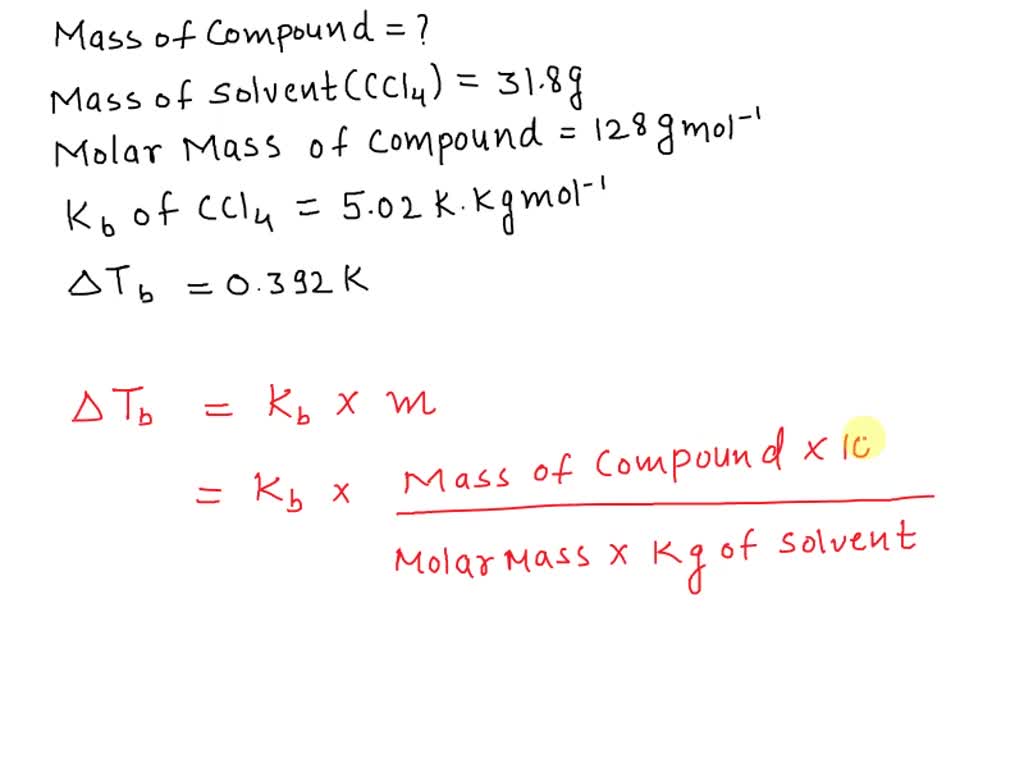 Mass of Compound = ?
Mass of Solvent (CCl₄) = 31.8g
Molar Mass of Compound = 128 g mol⁻¹
K_b of CCl₄ = 5.02 K.Kg mol⁻¹
ΔT_b = 0.392 K
ΔT_b = K_b × m
= K_b × Mass of Compound × 10
Molar Mass × Kg of Solvent